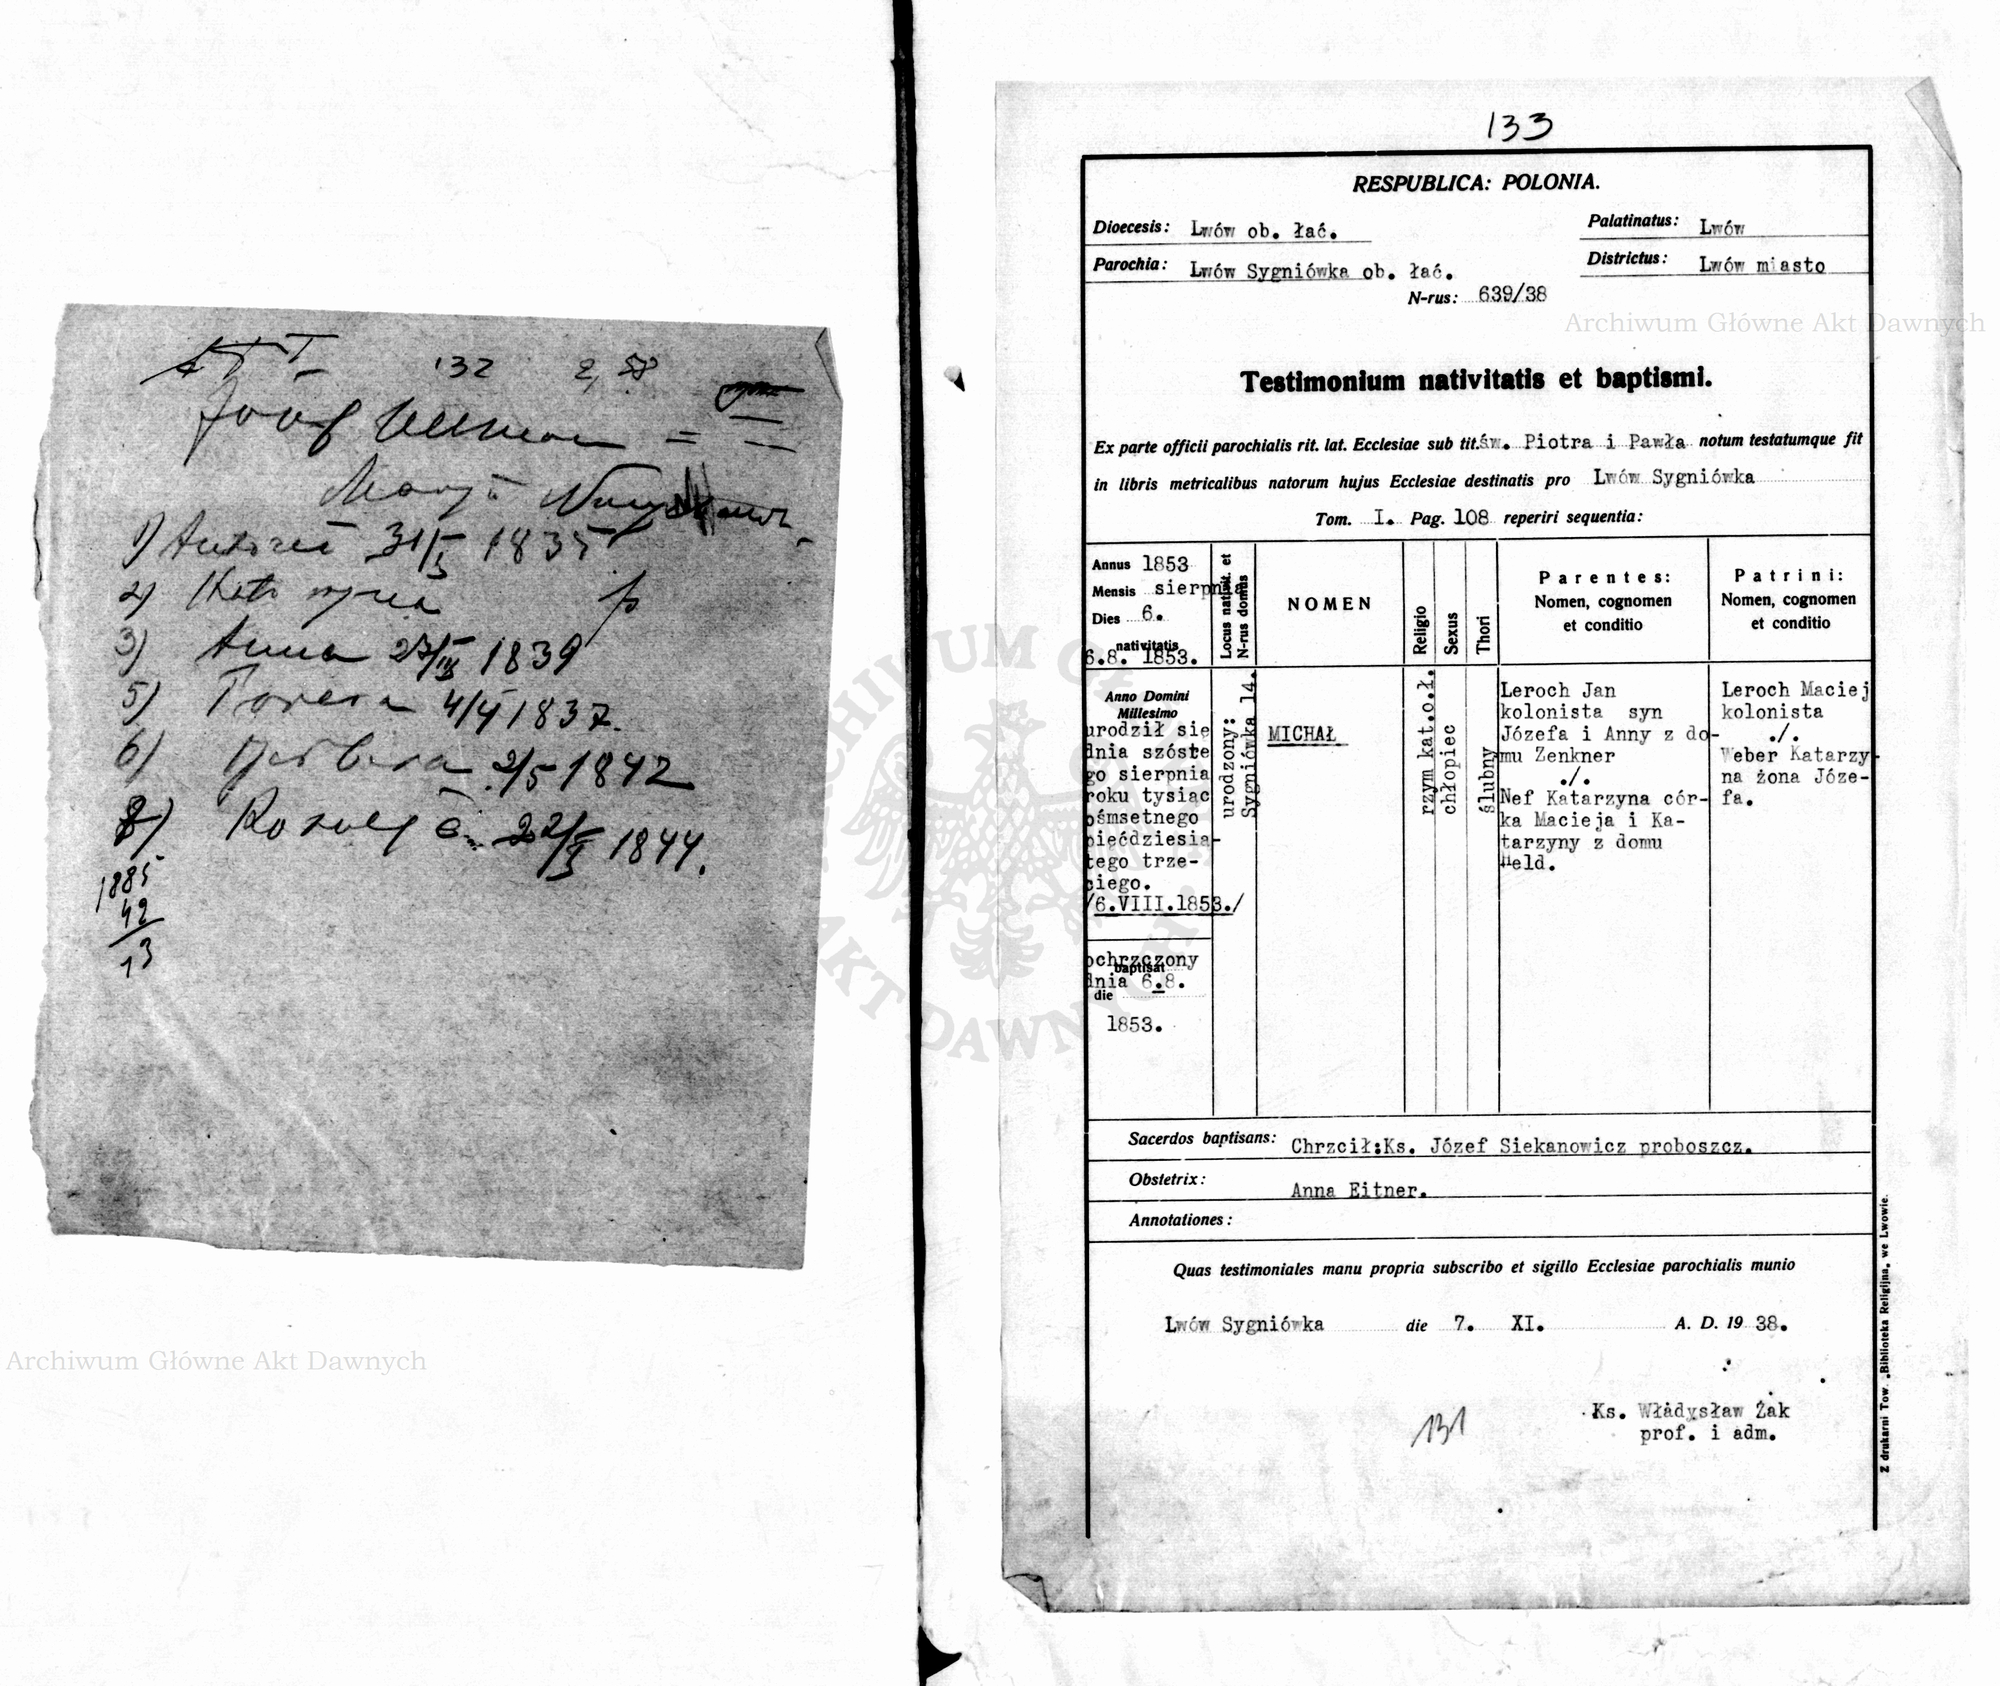 132 2,58
Józef Ullman =
Marja
1) Andrzej 31/5 1835
2) Katarzyna
3) Anna 27/III 1839
5) Teresa 4/5 1837.
6) Barbara 2/5 1842
8) Rozalja 22/5 1844.
1885
42
13
133
RESPUBLICA: POLONIA.
Dioecesis: Lwów ob. łać. Palatinatus: Lwów
Parochia: Lwów Sygniówka ob. łać. Districtus: Lwów miasto
N-rus: 639/38
Testimonium nativitatis et baptismi.
Ex parte officii parochialis rit. lat. Ecclesiae sub tit. św. Piotra i Pawła notum testatumque fit
in libris metricalibus natorum hujus Ecclesiae destinatis pro Lwów Sygniówka
Tom. I. Pag. 108 reperiri sequentia:
Annus 1853
Mensis sierpnia
Dies 6.
nativitatis
6.8. 1853.
Locus nativit. et
N-rus domus
NOMEN
Religio
Sexus
Thori
Parentes:
Nomen, cognomen
et conditio
Patrini:
Nomen, cognomen
et conditio
Anno Domini
Millesimo
urodził się
dnia szóste
go sierpnia
roku tysiąc
ośmsetnego
pięćdziesią-
tego trze-
ciego.
/6.VIII.1853./
ochrzczony
baptisat
dnia 6.8.
die
1853.
urodzony:
Sygniówka 14.
MICHAŁ
rzym kat.o.ł.
chłopiec
ślubny
Leroch Jan
kolonista syn
Józefa i Anny z do-
mu Zenkner
./.
Nef Katarzyna cór-
ka Macieja i Ka-
tarzyny z domu
Held.
Leroch Maciej
kolonista
./.
Weber Katarzy-
na żona Józe-
fa.
Sacerdos baptisans: Chrzcił:Ks. Józef Siekanowicz proboszcz.
Obstetrix: Anna Eitner.
Annotationes:
Quas testimoniales manu propria subscribo et sigillo Ecclesiae parochialis munio
Lwów Sygniówka die 7. XI. A. D. 19 38.
Ks. Władysław Żak
prof. i adm.
131
Z drukarni Tow. „Biblioteka Religijna„ we Lwowie.
Archiwum Główne Akt Dawnych
Archiwum Główne Akt Dawnych
ARCHIWUM GŁÓWNE AKT DAWNYCH